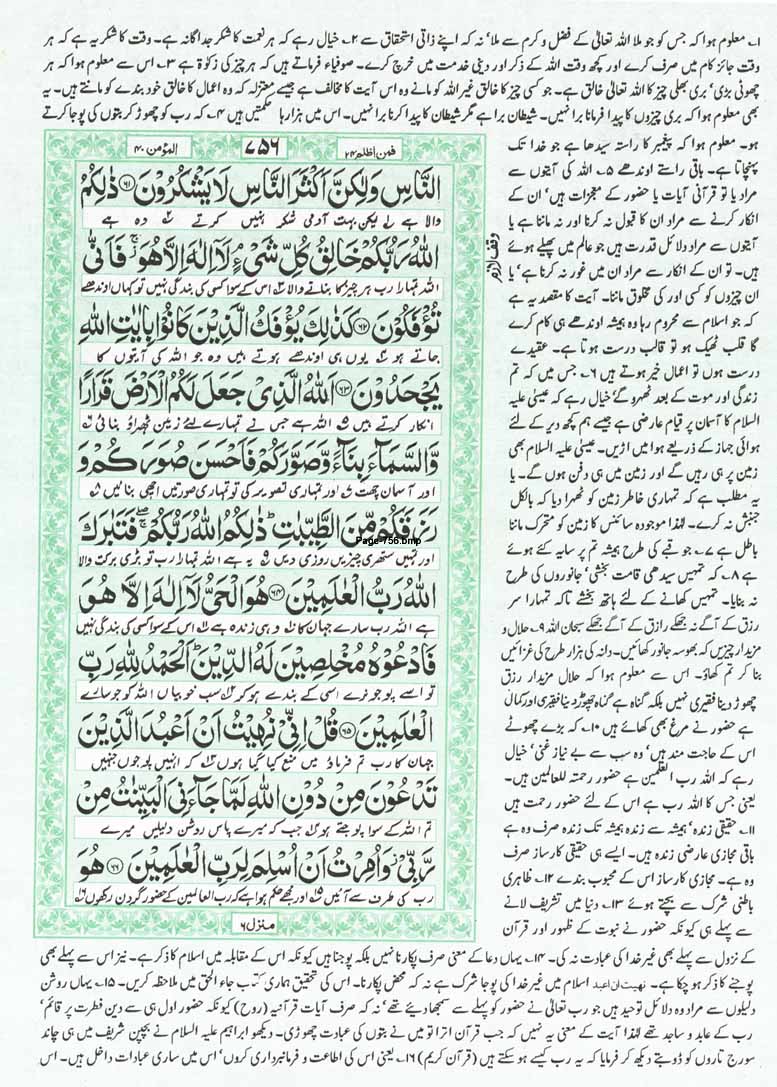 ۱؎ معلوم ہوا کہ جس کو جو ملا اللہ تعالٰی کے فضل و کرم سے ملا‘ نہ کہ اپنے ذاتی استحقاق سے ۲؎ خیال رہے کہ ہر نعمت کا شکر جداگانہ ہے۔ وقت کا شکر یہ ہے کہ ہر
وقت جائز کام میں صرف کرے اور کچھ وقت اللہ کے ذکر اور دینی خدمت میں خرچ کرے۔ صوفیاء فرماتے ہیں کہ ہر چیز کی زکوٰۃ ہے ۳؎ اس سے معلوم ہوا کہ ہر
چھوٹی بڑی‘ بری بھلی چیز کا اللہ تعالٰی خالق ہے۔ جو کسی چیز کا خالق غیر اللہ کو مانے وہ اس آیت کا مخالف ہے جیسے معتزلہ کہ وہ اعمال کا خالق خود بندے کو مانتے ہیں۔ یہ
بھی معلوم ہوا کہ بری چیزوں کا پیدا فرمانا برا نہیں۔ شیطان برا ہے مگر شیطان کا پیدا کرنا برا نہیں۔ اس میں ہزارہا حکمتیں ہیں ۴؎ کہ رب کو چھوڑ کر بتوں کی پوجا کرتے
ہو۔ معلوم ہوا کہ پیغمبر کا راستہ سیدھا ہے جو خدا تک
پہنچاتا ہے۔ باقی راستے اوندھے ۵؎ اللہ کی آیتوں سے
مراد یا تو قرآنی آیات یا حضور کے معجزات ہیں‘ ان کے
انکار کرنے سے مراد ان کا قبول نہ کرنا اور نہ ماننا ہے یا
آیتوں سے مراد دلائل قدرت ہیں جو عالم میں پھیلے ہوئے
ہیں۔ تو ان کے انکار سے مراد ان میں غور نہ کرنا ہے‘ یا
ان چیزوں کو کسی اور کی مخلوق ماننا۔ آیت کا مقصد یہ ہے
کہ جو اسلام سے محروم رہا وہ ہمیشہ اوندھے ہی کام کرے
گا قلب ٹھیک ہو تو قالب درست ہوتا ہے۔ عقیدے
درست ہوں تو اعمال خیر ہوتے ہیں ۶؎ جس میں کہ تم
زندگی اور موت کے بعد ٹھہرو گے خیال رہے کہ عیسٰی علیہ
السلام کا آسمان پر قیام عارضی ہے جیسے ہم کچھ دیر کے لئے
ہوائی جہاز کے ذریعے ہوا میں اڑیں۔ عیسٰی علیہ السلام بھی
زمین پر ہی رہیں گے اور زمین میں ہی دفن ہوں گے۔ یا
یہ مطلب ہے کہ تمہاری خاطر زمین کو ٹھہرا دیا کہ بالکل
جنبش نہ کرے۔ لہٰذا موجودہ سائنس کا زمین کو متحرک ماننا
باطل ہے ۷؎ جو قبے کی طرح ہمیشہ تم پر سایہ کئے ہوئے
ہے ۸؎ کہ تمہیں سیدھی قامت بخشی‘ جانوروں کی طرح
نہ بنایا۔ تمہیں کھانے کے لئے ہاتھ بخشے تاکہ تمہارا سر
رزق کے آگے نہ جھکے رازق کے آگے جھکے سبحان اللہ ۹؎ حلال و
مزیدار چیزیں کہ بھوسہ جانور کھائیں۔ دانہ کی ہزار طرح کی غزائیں
بنا کر تم کھاؤ۔ اس سے معلوم ہوا کہ حلال مزیدار رزق
چھوڑ دینا فقیری نہیں بلکہ گناہ ہے گناہ چھوڑ دینا فقیری اور کمال
ہے حضور نے مرغ بھی کھائے ہیں ۱۰؎ کہ بڑے چھوٹے
اس کے حاجت مند ہیں‘ وہ سب سے بے نیاز غنی‘ خیال
رہے کہ اللہ رب العٰلمین ہے حضور رحمتہ للعالمین ہیں۔
یعنی جس کا اللہ رب ہے اس کے لئے حضور رحمت ہیں
۱۱؎ حقیقی زندہ‘ ہمیشہ سے زندہ ہمیشہ تک زندہ صرف وہ ہے
باقی مجازی عارضی زندہ ہیں۔ ایسے ہی حقیقی کارساز صرف
وہ ہے۔ مجازی کارساز اس کے محبوب بندے ۱۲؎ ظاہری
باطنی شرک سے بچتے ہوئے ۱۳؎ دنیا میں تشریف لانے
سے پہلے ہی کیونکہ حضور نے نبوت کے ظہور اور قرآن
المؤمن ۴۰
۷۵۶
فمن اظلم ۲۴
النَّاسِ وَلٰكِنَّ اَكْثَرَ النَّاسِ لَا يَشْكُرُوْنَ ﴿۶۱﴾ ذٰلِكُمُ
والا ہے ۱؎ لیکن بہت آدمی شکر نہیں کرتے ۲؎ وہ ہے
اللّٰهُ رَبُّكُمْ خَالِقُ كُلِّ شَىْءٍ ۘ لَاۤ اِلٰهَ اِلَّا هُوَ ۚ فَاَنّٰى
اللہ تمہارا رب ہر چیز کا بنانے والا ۳؎ اس کے سوا کسی کی بندگی نہیں تو کہاں اوندھے
وقف لازم
تُؤْفَكُوْنَ ﴿۶۲﴾ كَذٰلِكَ يُؤْفَكُ الَّذِيْنَ كَانُوْا بِاٰيٰتِ اللّٰهِ
جاتے ہو ۴؎ یوں ہی اوندھے ہوتے ہیں وہ جو اللہ کی آیتوں کا
يَجْحَدُوْنَ ﴿۶۳﴾ اَللّٰهُ الَّذِىْ جَعَلَ لَكُمُ الْاَرْضَ قَرَارًا
انکار کرتے ہیں ۵؎ اللہ ہے جس نے تمہارے لئے زمین ٹھہراؤ بنائی ۶؎
وَّالسَّمَآءَ بِنَآءً وَّصَوَّرَكُمْ فَاَحْسَنَ صُوَرَكُمْ وَ
اور آسمان چھت ۷؎ اور تمہاری تصویر کی تو تمہاری صورتیں اچھی بنائیں ۸؎
رَزَقَكُمْ مِّنَ الطَّيِّبٰتِ ؕ ذٰلِكُمُ اللّٰهُ رَبُّكُمْ ۖ فَتَبٰرَكَ
Page-756.bmp
اور تمہیں ستھری چیزیں روزی دیں ۹؎ یہ ہے اللہ تمہارا رب تو بڑی برکت والا
اللّٰهُ رَبُّ الْعٰلَمِيْنَ ﴿۶۴﴾ هُوَ الْحَىُّ لَاۤ اِلٰهَ اِلَّا هُوَ
ہے اللہ رب سارے جہان کا ۱۰؎ وہی زندہ ہے ۱۱؎ اس کے سوا کسی کی بندگی نہیں
فَادْعُوْهُ مُخْلِصِيْنَ لَهُ الدِّيْنَ ؕ اَلْحَمْدُ لِلّٰهِ رَبِّ
تو اسے پوجو نرے اسی کے بندے ہو کر ۱۲؎ سب خوبیاں اللہ کو جو سارے
الْعٰلَمِيْنَ ﴿۶۵﴾ قُلْ اِنِّىْ نُهِيْتُ اَنْ اَعْبُدَ الَّذِيْنَ
جہان کا رب تم فرماؤ میں منع کیا گیا ہوں ۱۳؎ کہ انہیں پوجوں جنہیں
تَدْعُوْنَ مِنْ دُوْنِ اللّٰهِ لَمَّا جَآءَنِىَ الْبَيِّنٰتُ مِنْ
تم اللہ کے سوا پوجتے ہو ۱۴؎ جب کہ میرے پاس روشن دلیلیں میرے
رَّبِّىْ ۫ وَاُمِرْتُ اَنْ اُسْلِمَ لِرَبِّ الْعٰلَمِيْنَ ﴿۶۶﴾ هُوَ
رب کی طرف سے آئیں ۱۵؎ اور مجھے حکم ہوا ہے کہ رب العالمین کے حضور گردن رکھوں ۱۶؎
منزل ۶
کے نزول سے پہلے بھی غیر خدا کی عبادت نہ کی۔ ۱۴؎ یہاں دعا کے معنی صرف پکارنا نہیں بلکہ پوجنا ہیں کیونکہ اس کے مقابلہ میں اسلام کا ذکر ہے۔ نیز اس سے پہلے بھی
پوجنے کا ذکر ہو چکا ہے۔ نهيت ان اعبد اسلام میں غیر خدا کی پوجا شرک ہے نہ کہ محض پکارنا۔ اس کی تحقیق ہماری کتاب جاء الحق میں ملاحظہ کریں۔ ۱۵؎ یہاں روشن
دلیلوں سے مراد وہ دلائل توحید ہیں جو رب تعالٰی نے حضور کو پہلے سے سمجھا دیئے تھے‘ نہ کہ صرف آیات قرآنیہ (روح) کیونکہ حضور اول ہی سے دین فطرت پر قائم‘
رب کے عابد و ساجد تھے لہٰذا آیت کے معنی یہ نہیں کہ جب قرآن اترا تو میں نے بتوں کی عبادت چھوڑی۔ دیکھو ابراہیم علیہ السلام نے بچپن شریف میں ہی چاند
سورج تاروں کو ڈوبتے دیکھ کر فرمایا کہ یہ رب کیسے ہو سکتے ہیں (قرآن کریم) ۱۶؎ یعنی اس کی اطاعت و فرمانبرداری کروں‘ اس میں ساری عبادات داخل ہیں۔ اس